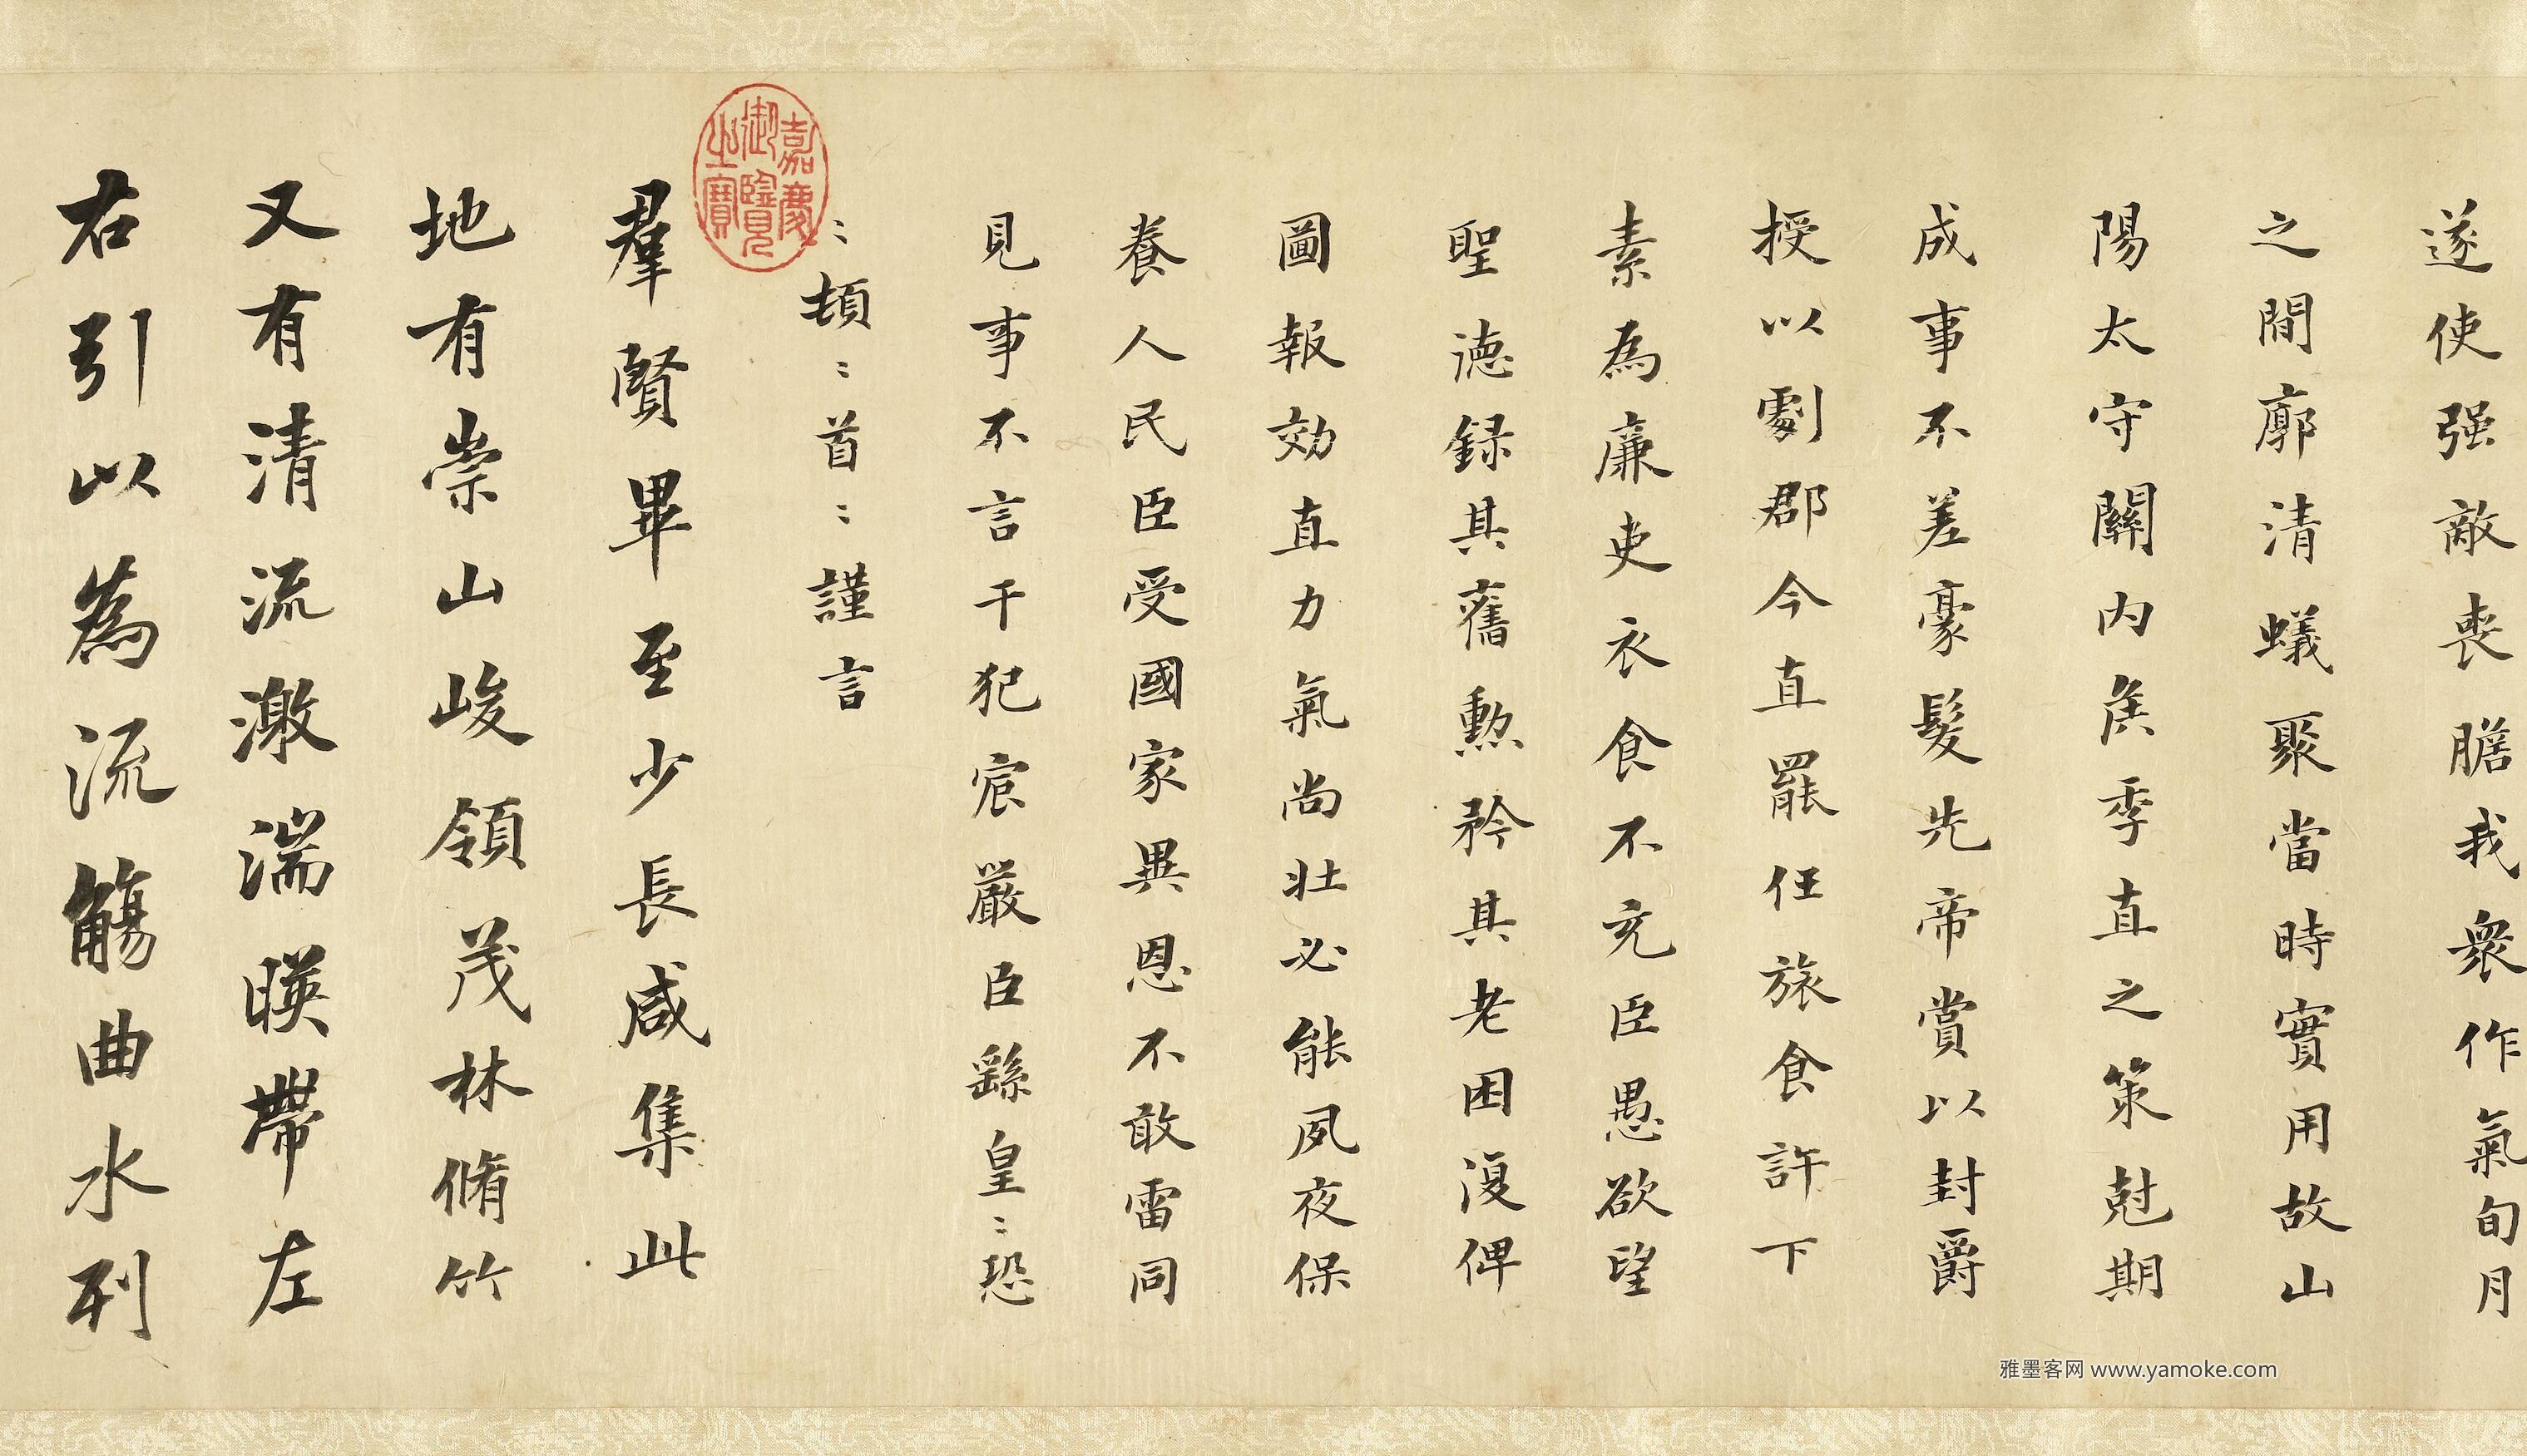 遂使强敵喪膽我衆作氣旬月
之間廓清蟻聚當時實用故山
陽太守關內侯季直之策尅期
成事不差豪髮先帝賞以封爵
授以劇郡今直罷任旅食許下
素為廉吏衣食不充臣愚欲望
聖德録其舊勲矜其老困復俾
圖報効直力氣尚壯必能夙夜保
養人民臣受國家異恩不敢雷同
見事不言干犯宸嚴臣繇皇〻恐
〻頓〻首〻謹言
嘉慶
御覽
之寶
羣賢畢至少長咸集此
地有崇山峻領茂林脩竹
又有清流激湍暎帶左
右引以為流觴曲水列
雅墨客网 www.yamoke.com